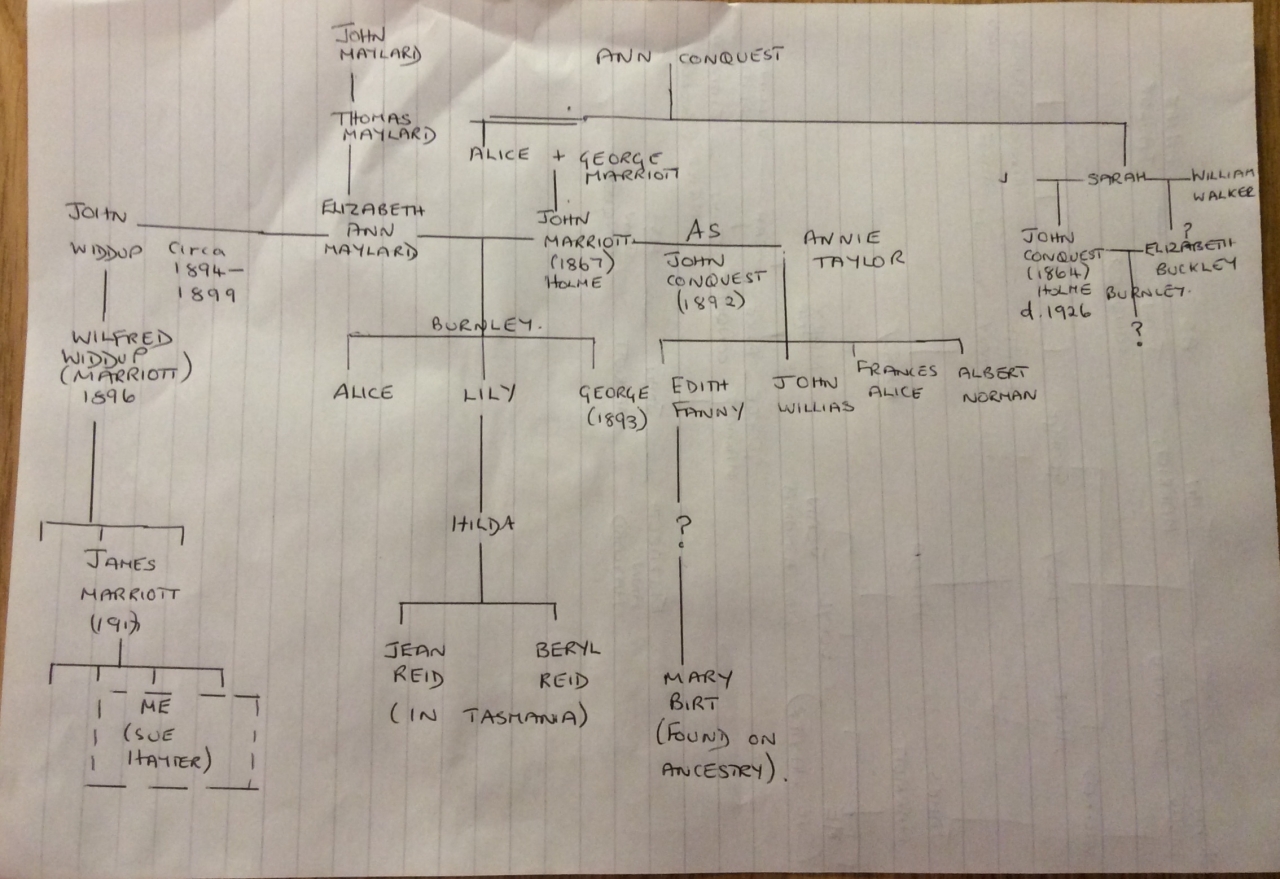 JOHN
MAYLARD
ANN CONQUEST
THOMAS
MAYLARD
ALICE + GEORGE
MARRIOTT
J
SARAH
WILLIAM
WALKER
JOHN
WIDDUP
Circa
1894-
1899
ELIZABETH
ANN
MAYLARD
JOHN
MARRIOTT
(1867)
HOLME
AS
JOHN
CONQUEST
(1892)
ANNIE
TAYLOR
JOHN
CONQUEST
(1864)
HOLME
d. 1926
?
ELIZABETH
BUCKLEY
BURNLEY.
?
WILFRED
WIDDUP
(MARRIOTT)
1896
BURNLEY.
ALICE
LILY
GEORGE
(1893)
EDITH
FANNY
JOHN
WILLIAS
FRANCES
ALICE
ALBERT
NORMAN
HILDA
?
JAMES
MARRIOTT
JEAN
REID
BERYL
REID
(IN TASMANIA)
MARY
BIRT
(FOUND ON
ANCESTRY).
ME
(SUE
HAYTER)